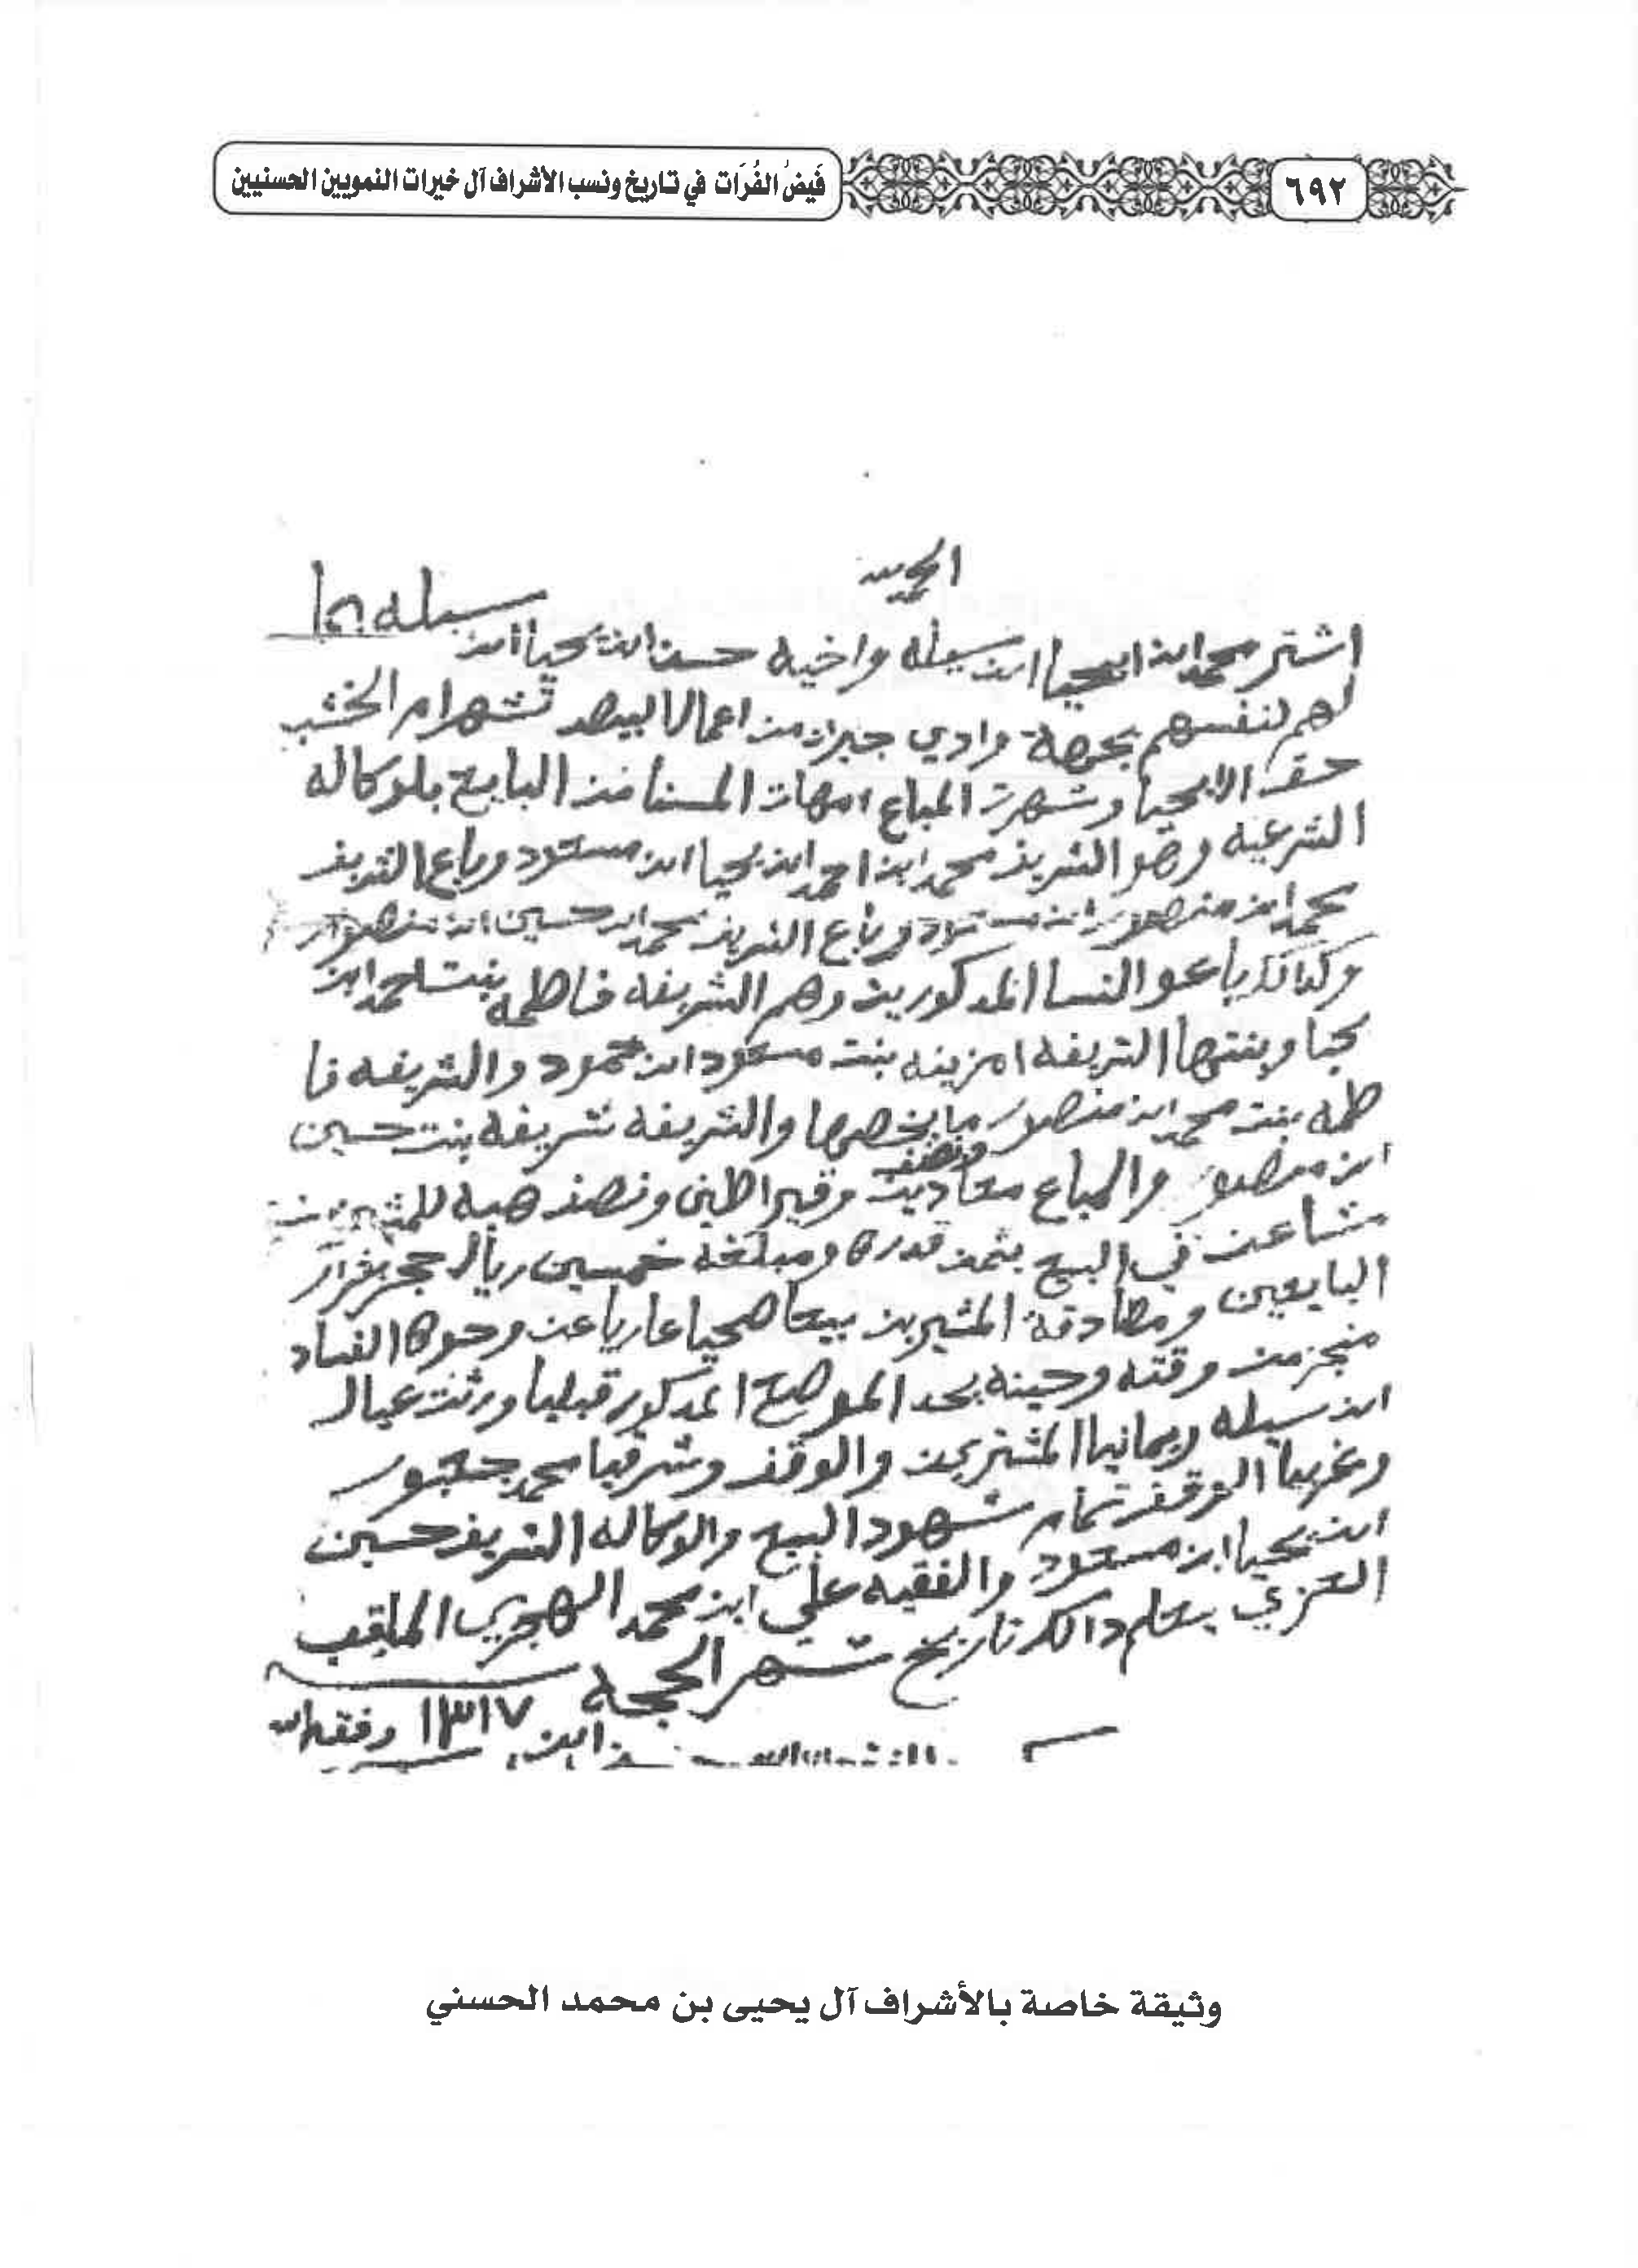 ٦٩٢
فَيضُ الفُرَات في تاريخ ونسب الأشراف آل خيرات النمويين الحسنيين
الحمد لله
اشتر محمد ابن ابيحيا ابن سبله واخيه حسن ابن يحيا ابن سبله بما
لهم لنفسهم بجهة وادي جبران من اعمال البيض تشهر ام الخشب
حق الا يحيا وشهرت المباع امهات المسنا من البايع بلوكاله
الشرعيه وهو الشريف محمد ابن احمد ابن يحيا ابن مسعود وباع الشريف
محمد ابن منصور ابن مسعود وباع الشريف محمد ابن حسين ابن منصور
وكذالك باعو النسا المذكورين وهم الشريفه فاطمه بنت احمد ابن
يحيا وبنتها الشريفه امزينه بنت مسعود ابن حمود والشريفه فا
طمه بنت محمد ابن منصور ما يخصها والشريفه شريفه بنت حسين
ابن منصور والمباع معادين ونصف وقيراطين ونصف هبه
في البيع بثمن قدره ومبلغه خمسين ريال حجر بقرار
البايعين ومصادقة المشترين بيعا صحيا عاريا عن وجوه الفساد
منجز من وقته وحينه بحد الموضع المذكور قبليا ورثت عيال
ابن سبله ويمانيا المشترين والوقف وشرقيا محمد
وغربيا الوقف تمام شهود البيع والوكاله الشريف حسين
ابن يحيا ابن مسعود والفقيه علي ابن محمد الهجري الملقب
العزي بعلم ذالك تاريخ شهر الحجة
١٣١٧ وفقه الله
وثيقة خاصة بالأشراف آل يحيى بن محمد الحسني